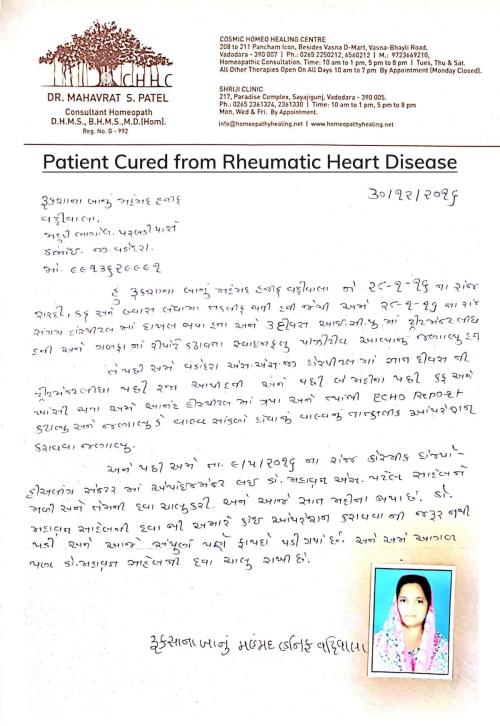 CHHC
DR. MAHAVRAT S. PATEL
Consultant Homeopath
D.H.M.S., B.H.M.S.,M.D.(Hom).
Reg. No. G - 992
COSMIC HOMEO HEALING CENTRE
208 to 211 Pancham Icon, Besides Vasna D-Mart, Vasna-Bhayli Road,
Vadodara - 390 007 | Ph.: 0265 2250212, 6560212 | M.: 9723669210,
Homeopathic Consultation. Time: 10 am to 1 pm, 5 pm to 8 pm | Tues, Thu & Sat.
All Other Therapies Open On All Days 10 am to 7 pm By Appointment (Monday Closed).
SHRIJI CLINIC
217, Paradise Complex, Sayajigunj, Vadodara - 390 005.
Ph.: 0265 2361324, 2361330 | Time: 10 am to 1 pm, 5 pm to 8 pm
Mon, Wed & Fri. By Appointment.
info@homeopathyhealing.net | www.homeopathyhealing.net
Patient Cured from Rheumatic Heart Disease
૩૦/૧૨/૨૦૧૬
રૂકશાના બાનું મહંમદ હનીફ
વહીવાલા,
ડભોઇ. જી. વડોદરા.
હું રૂકશાના બાનું મહંમદ હનીફ વહીવાલા ને ૨૮-૧-૧૬ ના રોજ
શરદી, કફ અને શ્વાસ લેવામાં તકલીફ થતી હતી જેથી અમે ૨૮-૧-૧૬ ના રોજ
સંગમ હોસ્પીટલ માં દાખલ થયા હતા અને ૩ દીવસ આઇ.સી.યુ માં ટ્રીટમેન્ટ લીધી
હતી અને ગળફા નો રીપોર્ટ કઢાવતા સ્વાઇનફ્લુ પોઝીટીવ આવ્યાનું જણાવ્યુ હતું
તે પછી અમે વડોદરા એસ.એસ.જી હોસ્પીટલમાં સાત દીવસ ની
ટ્રીટમેન્ટ લીધા પછી રજા આપી હતી અને પછી બે મહીના પછી કફ અને
ખાંસી થતા અમે આનંદ હોસ્પીટલ માં ગયા અને ત્યાંથી ECHO REPORT
કઢાવ્યુ અને જણાવ્યુ કે વાલ્વ સાંકડો હોવાનું વાલ્વનું તાત્કાલીક ઓપરેશન
કરાવવા જણાવ્યુ.
અને પછી અમે તા. ૯/૫/૨૦૧૬ ના રોજ કોસ્મીક હોમ્યો-
હીલીંગ સેન્ટર માં એપોઇન્ટમેન્ટ લઇ ડો. મહાવ્રત એસ. પટેલ સાહેબને
મળી અને તેમની દવા ચાલુ કરી. અને આજે સાત મહીના થયા છે. ડો.
મહાવ્રત સાહેબની દવા થી અમારે કોઇ ઓપરેશન કરાવવા ની જરૂર નથી
પડી અને આજે સંપુર્ણ પણે ફાયદો પડી ગયો છે. અને અમે આગળ
પણ ડો. મહાવ્રત સાહેબની દવા ચાલુ રાખી છે.
રૂકસાના બાનું મહંમદ હનિફ વહિવાલા